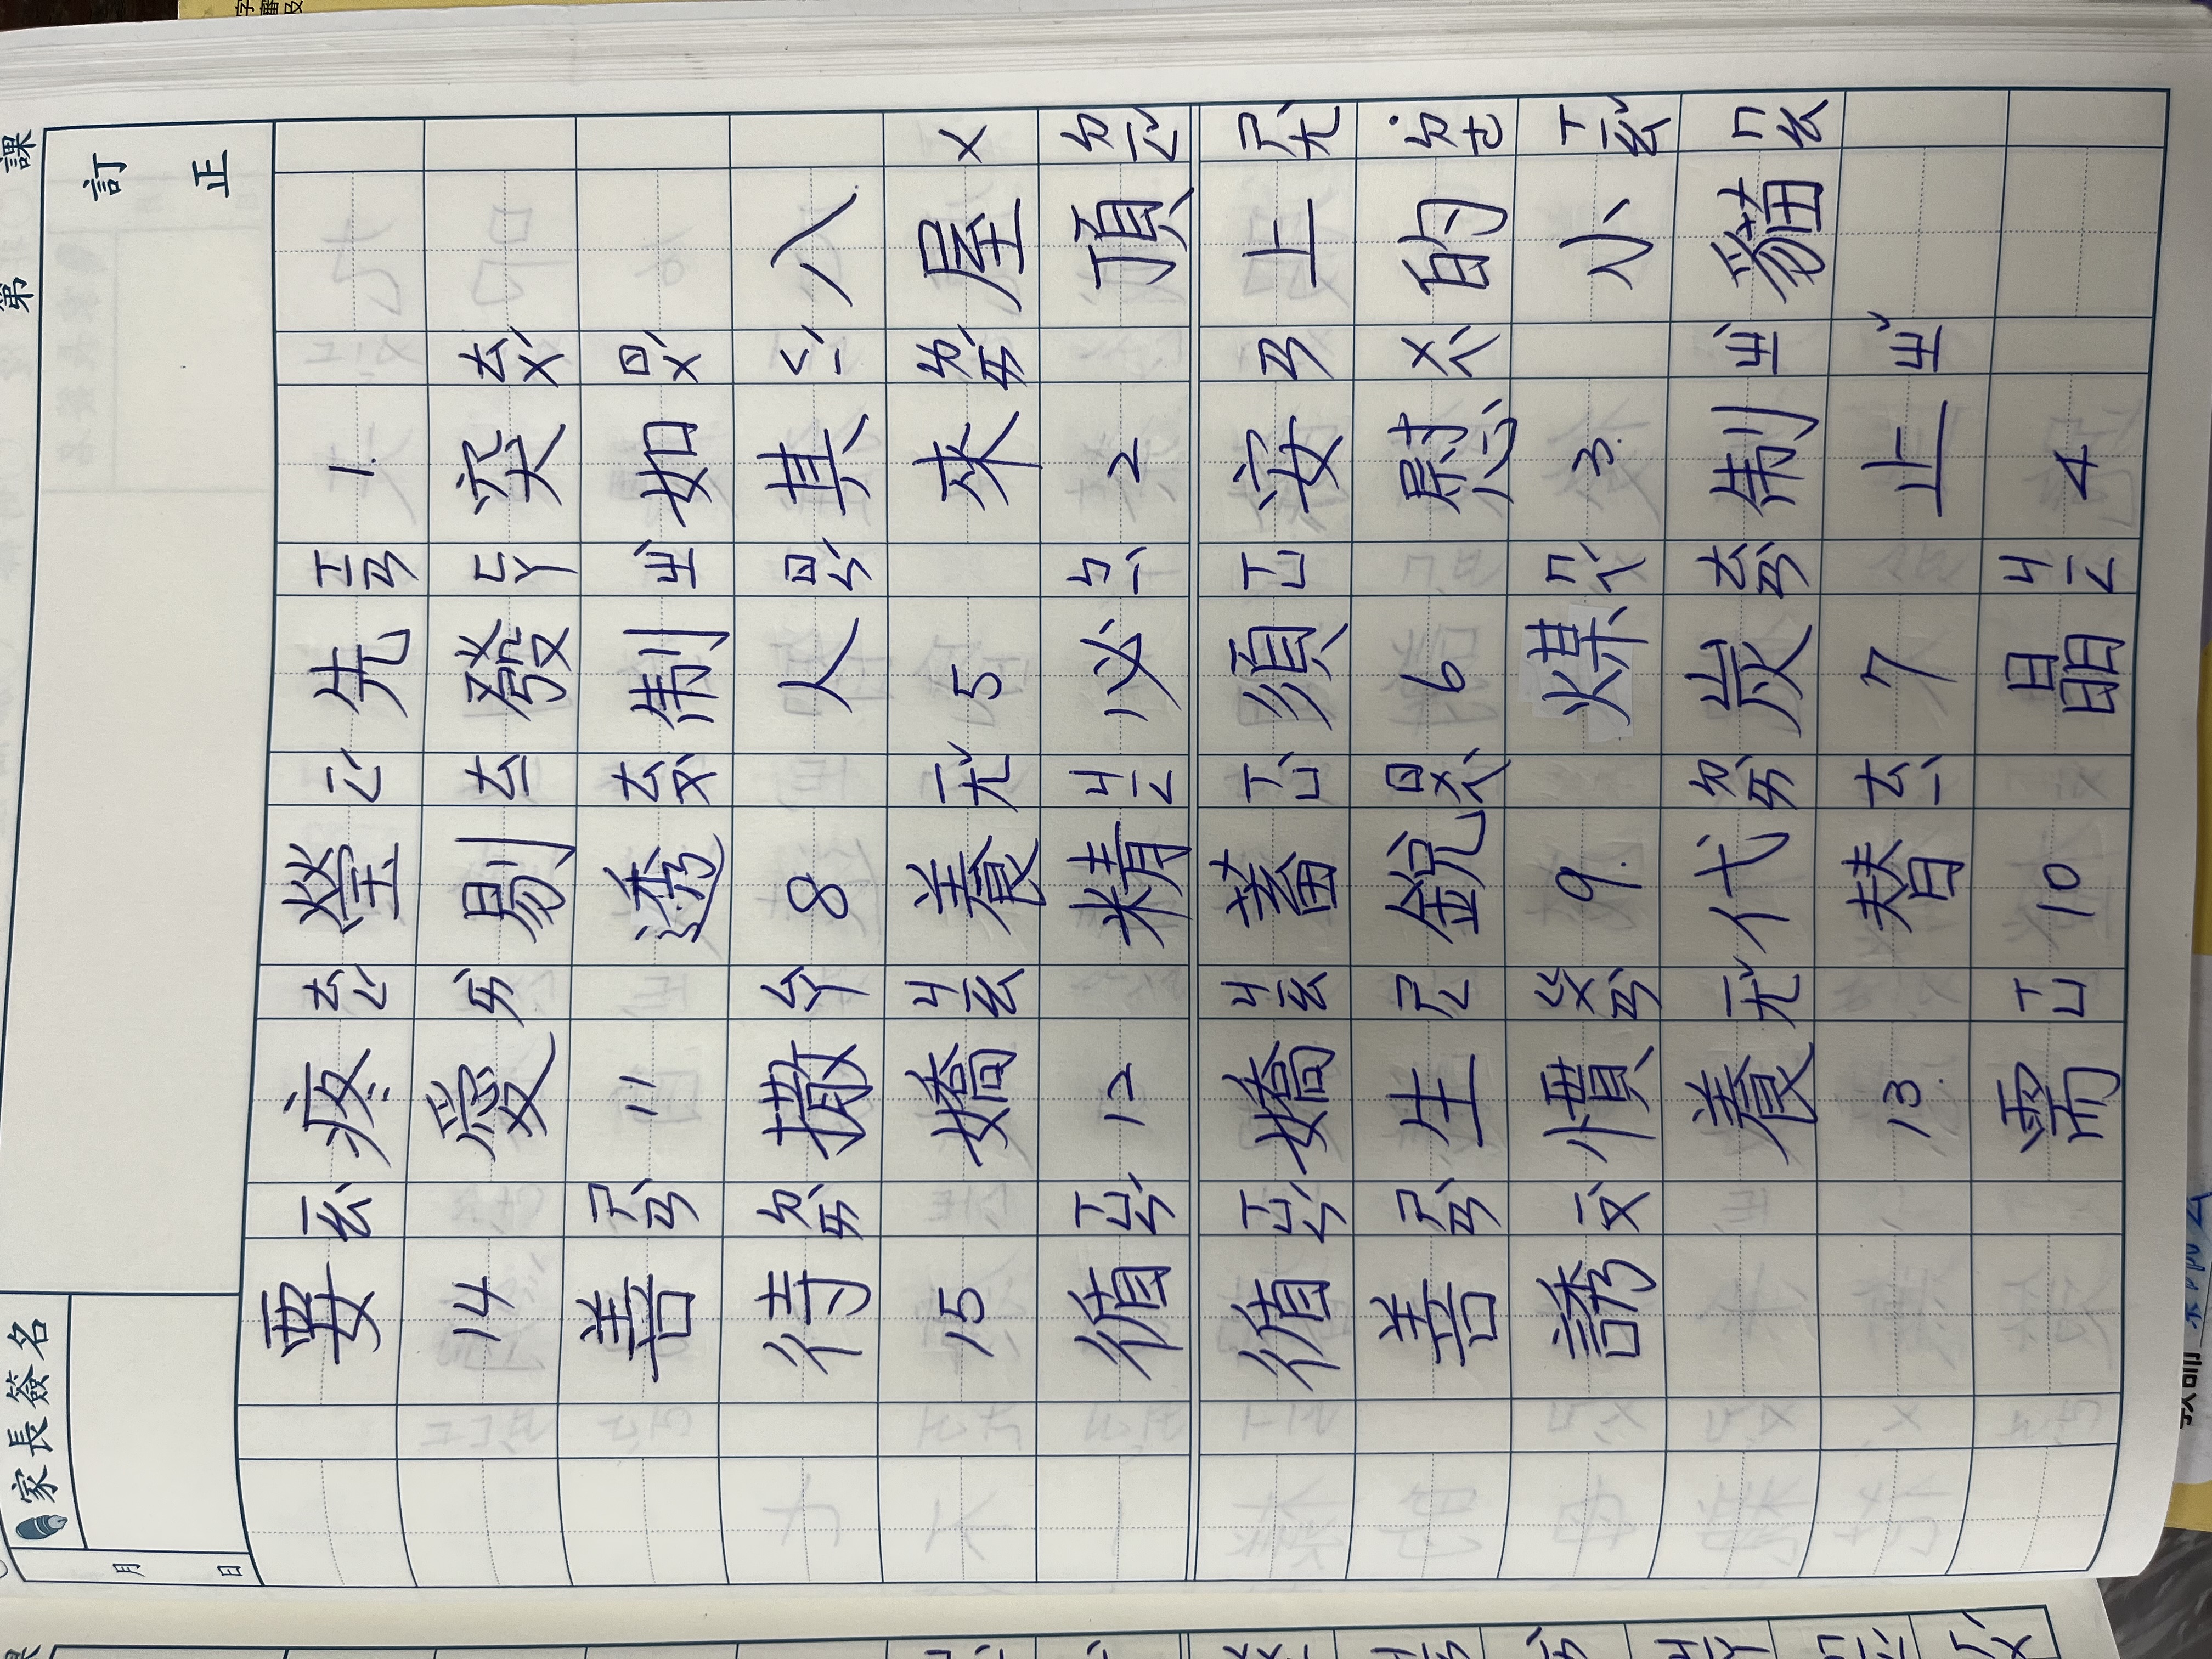 第 課
訂正
家長簽名
月 日
八屋頂上的小貓
ㄨ ㄉㄧㄥˇ ㄕㄤˋ ˙ㄉㄜ ㄒㄧㄠˇ ㄇㄠ
1.突如其來2安慰3.制止4
ㄊㄨˊ ㄖㄨˊ ㄑㄧˊ ㄌㄞˊ ㄢ ㄨㄟˋ ㄓˋ ㄓˇ
先發制人5必須6煤炭7晶
ㄒㄧㄢ ㄈㄚ ㄓˋ ㄖㄣˊ ㄅㄧˋ ㄒㄩ ㄇㄟˊ ㄊㄢˋ ㄐㄧㄥ
瑩剔透8養精蓄銳9.代替10
ㄧㄥˊ ㄊㄧ ㄊㄡˋ ㄧㄤˇ ㄐㄧㄥ ㄒㄩˋ ㄖㄨㄟˋ ㄉㄞˋ ㄊㄧˋ
疼愛11撒嬌12嬌生慣養13.需
ㄊㄥˊ ㄞˋ ㄙㄚ ㄐㄧㄠ ㄐㄧㄠ ㄕㄥ ㄍㄨㄢˋ ㄧㄤˇ ㄒㄩ
要14善待15循循善誘
ㄧㄠˋ ㄕㄢˋ ㄉㄞˋ ㄒㄩㄣˊ ㄒㄩㄣˊ ㄕㄢˋ ㄧㄡˋ